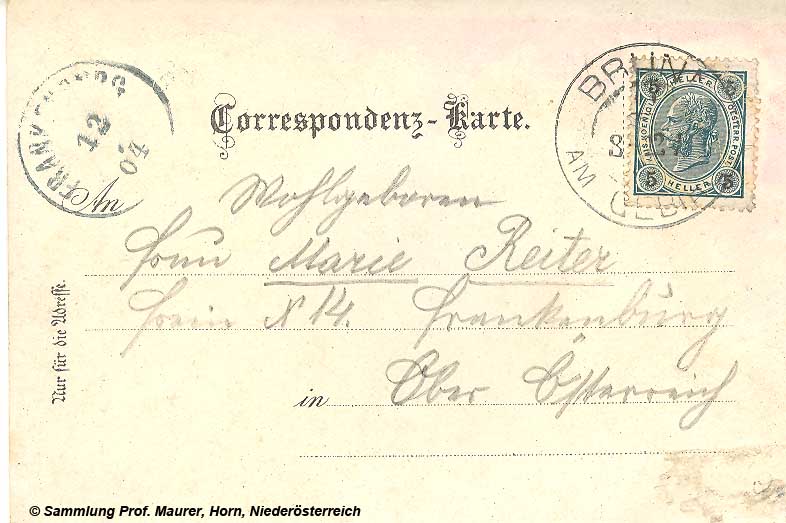 Correspondenz-Karte.
FRANKENBURG
12
04
BRUNN
AM GEBIRGE
5 HELLER 5
KAIS. KOENIGL. OESTERR. POST
5 HELLER 5
An
Wohlgeboren
Marie Reiter
N 14. Frankenburg
in Ober Österreich
Nur für die Adresse.
© Sammlung Prof. Maurer, Horn, Niederösterreich